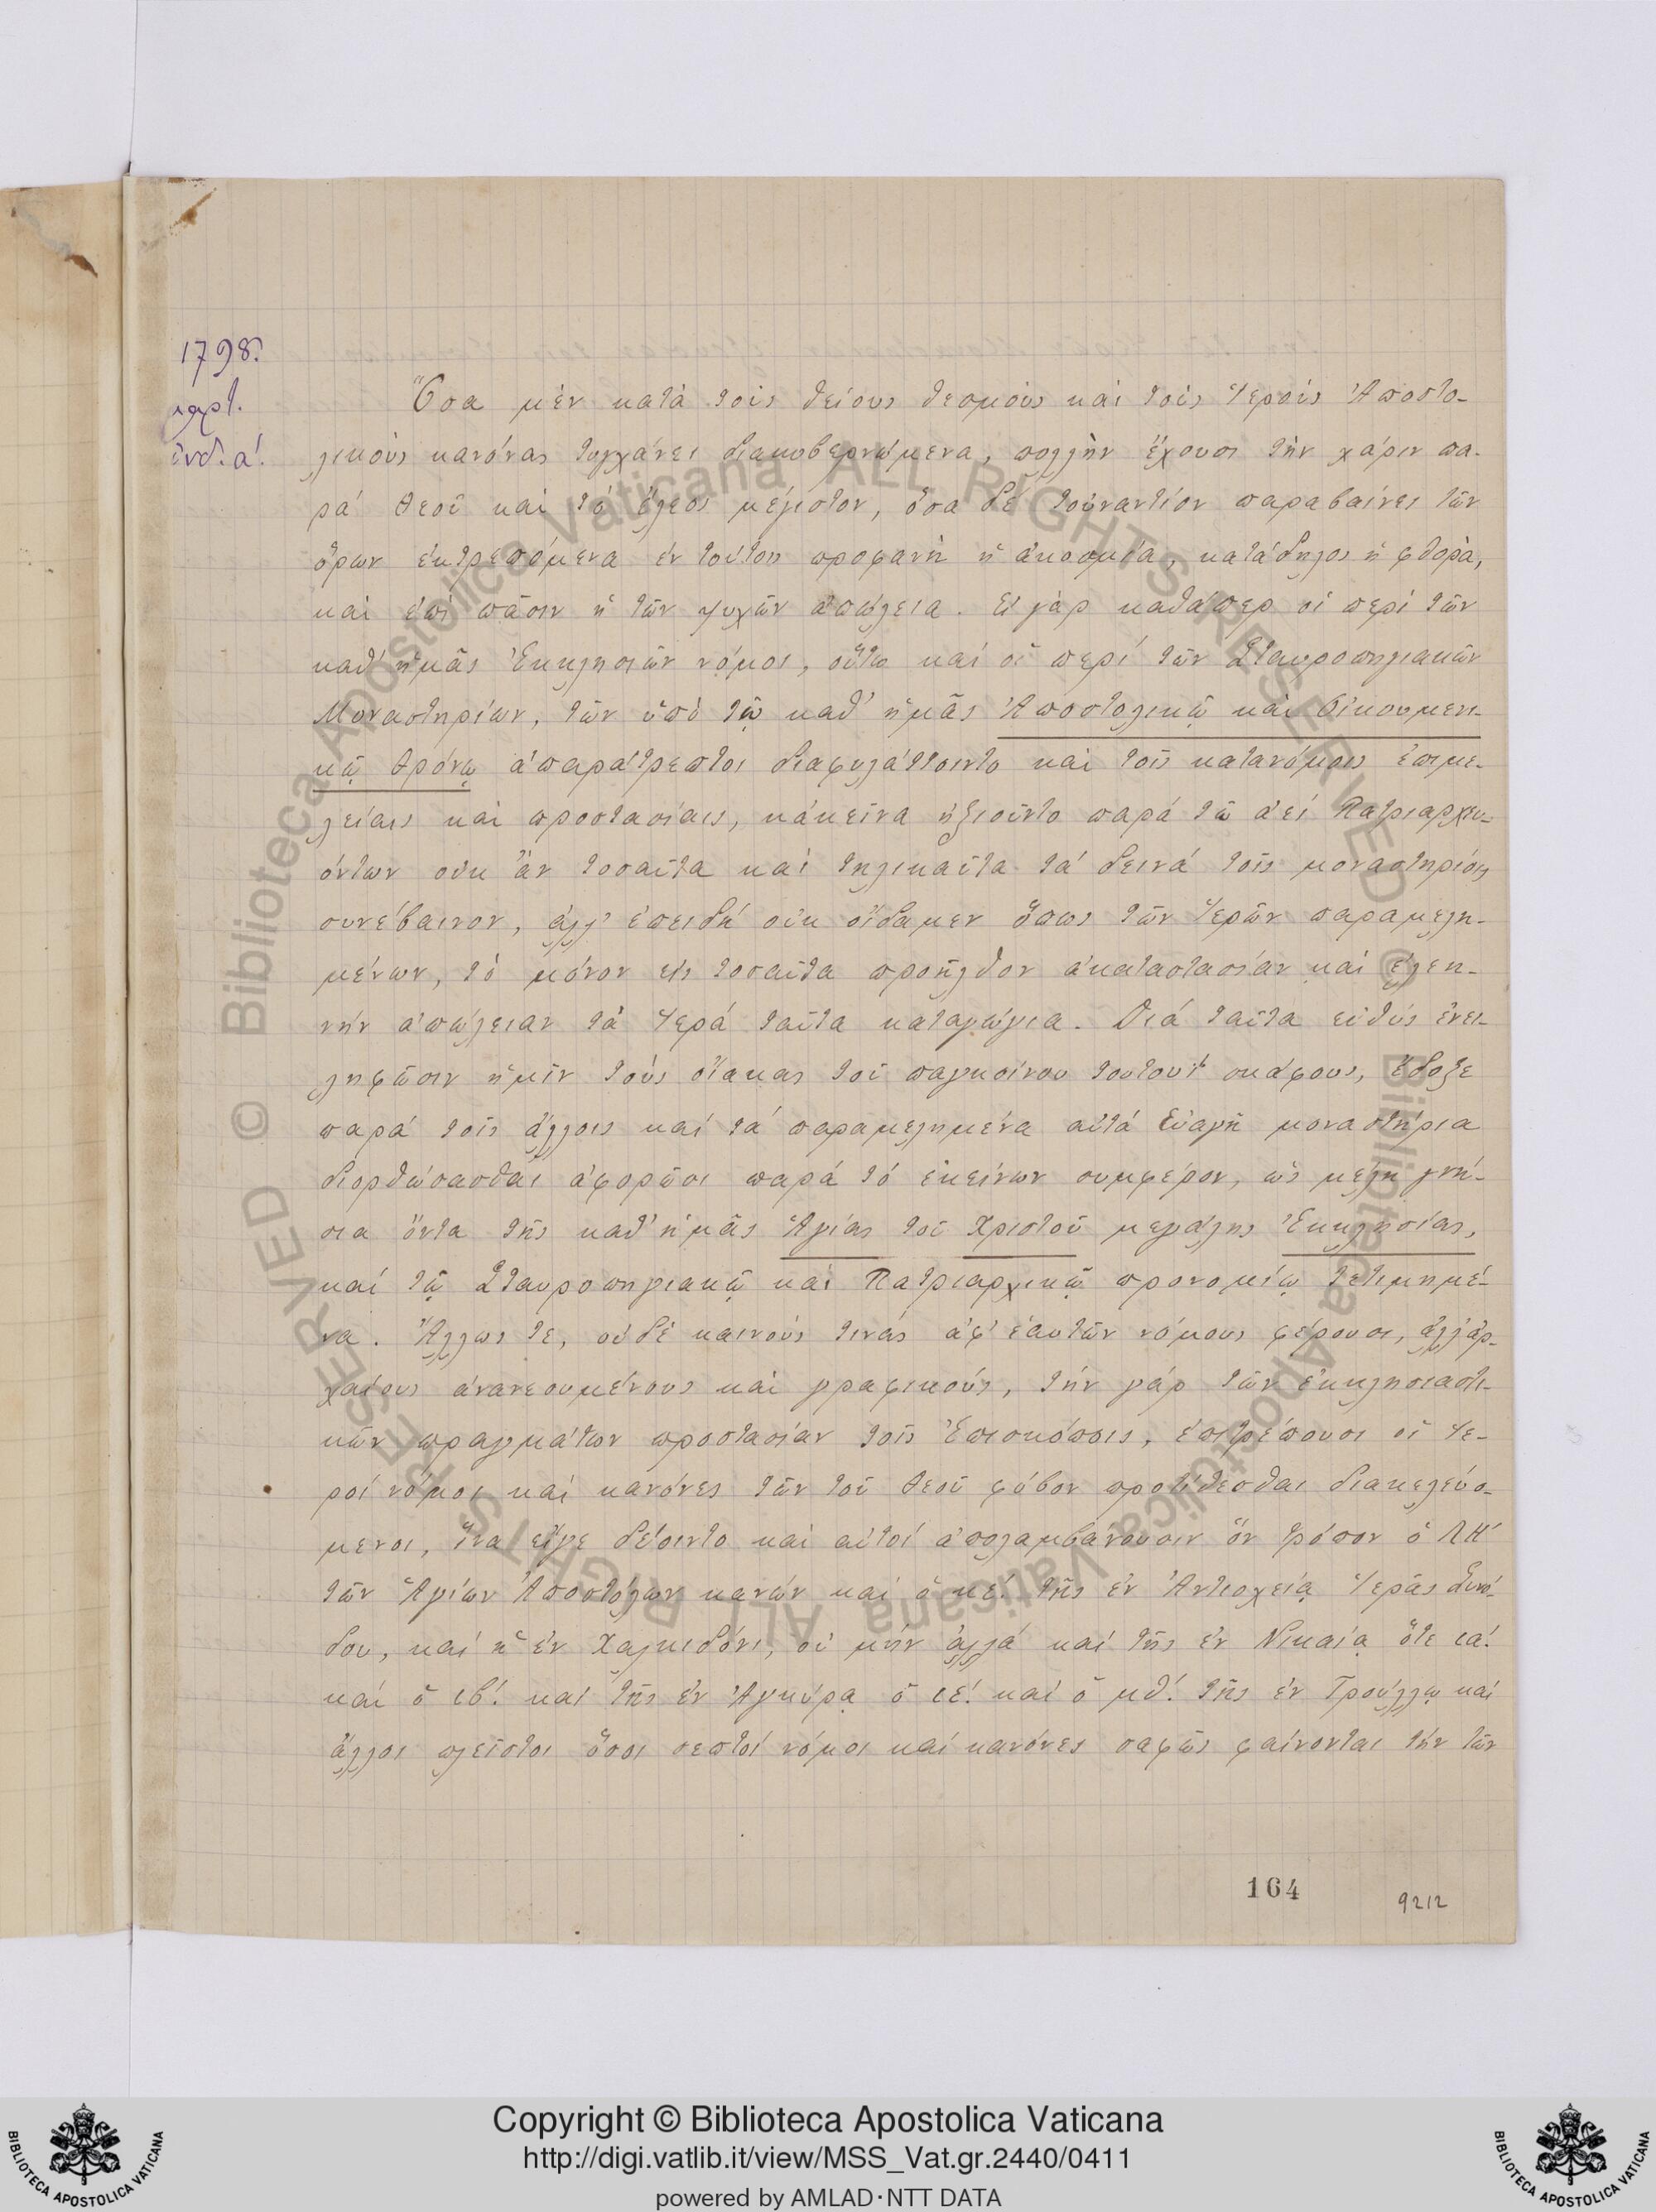 1798.
μαρτ.
ἰνδ. α΄.
Ὅσα μέν κατὰ τοὺς θείους θεσμοὺς καὶ τοὺς Ἱεροὺς Ἀποστο-
λικοὺς κανόνας τυγχάνει διακυβερνώμενα, πολλὴν ἔχουσι τὴν χάριν πα-
ρά Θεοῦ καὶ τό ἔλεος μέγιστον, ὅσα δέ τοὐναντίον παραβαίνει τῶν
ὅρων ἐκτρεπόμενα ἐν τούτοις προφανὴ ἡ ἀκοσμία, κατάδηλος ἡ φθορὰ,
καὶ ἐπὶ πᾶσιν ἡ τῶν ψυχῶν ἀπώλεια. Εἰ γὰρ καθάπερ οἱ περί τῶν
καθ' ἡμᾶς Ἐκκλησιῶν νόμοι, οὕτω καί οἱ περί τῶν Σταυροπηγιακῶν
Μοναστηρίων, τῶν ὑπὸ τῷ καθ' ἡμᾶς Ἀποστολικῷ καὶ Οἰκουμενι-
κῷ Θρόνῳ ἀπαράτρεπτοι διαφυλάττοιντο καὶ τοῖς κατανόμοις ἐπιμε-
λείαις καὶ προστασίαις, κἀκεῖνα ἠξιοῦντο παρά τῶ ἀεί Πατριαρχευ-
όντων οὐκ ἄν τοσαῦτα καί τηλικαῦτα τά δεινά τοῖς μοναστηρίοις
συνέβαινον, ἀλλ' ἐπειδή οὐκ οἴδαμεν ὅπως τῶν Ἱερῶν παραμελη-
μένων, τὸ μόνον εἰς τοσαῦτα προῆλθον ἀκαταστασίαν καί ἐλεει-
νήν ἀπώλειαν τὰ Ἱερά ταῦτα καταγώγια. Διά ταῦτα εὐθύς ἐνει-
ληφῶσιν ἡμῖν τοὺς οἴακας τοῦ παγκοίνου τουτουΐ σκάφους, ἔδοξε
παρά τοῖς ἄλλοις καί τά παραμελημένα αὐτά Εὐαγῆ μοναστήρια
διορθώσασθαι ἀφορῶσι παρά τό ἐκείνων συμφέρον, ὡς μέλη γνή-
σια ὄντα τῆς καθ' ἡμᾶς Ἁγίας τοῦ Χριστοῦ μεγάλης Ἐκκλησίας,
καί τῷ Σταυροπηγιακῷ καὶ Πατριαρχικῷ προνομίῳ τετιμημέ-
να. Ἄλλως τε, οὐδέ καινούς τινάς ἀφ' ἑαυτῶν νόμους φέρουσι, ἀλλ' ἀρ-
χαίους ἀνανεουμένους καὶ γραφικούς, τήν γάρ τῶν ἐκκλησιαστι-
κῶν πραγμάτων προστασίαν τοῖς Ἐπισκόποις, ἐπιτρέπουσι οἱ Ἱε-
ροί νόμοι καί κανόνες τῶν τοῦ Θεοῦ φόβον προτίθεσθαι διακελευό-
μενοι, ἵνα εἴγε δέοιντο καὶ αὐτοί ἀπολαμβάνουσιν ὅν τρόπον ὁ ΛΗ΄
τῶν Ἁγίων Ἀποστόλων κανών καί ὁ κέ. τῆς ἐν Ἀντιοχείᾳ Ἱερᾶς Συνό-
δου, καί ἡ ἐν Χαλκιδόνι, οὐ μήν ἀλλά καί τῆς ἐν Νικαίᾳ ὅτε ια΄.
καί ὁ ιβ΄. καί τῆς ἐν Ἀγκύρᾳ ὁ ιε΄. καί ὁ μθ΄. τῆς ἐν Τρούλλῳ καί
ἄλλοι πλεῖστοι ὅσοι σεπτοί νόμοι καί κανόνες σαφῶς φαίνονται τήν τῶν
164
9212
© Biblioteca Apostolica Vaticana ALL RIGHTS RESERVED
© Biblioteca Apostolica Vaticana ALL RIGHTS RESERVED
Copyright © Biblioteca Apostolica Vaticana
http://digi.vatlib.it/view/MSS_Vat.gr.2440/0411
powered by AMLAD·NTT DATA
BIBLIOTECA APOSTOLICA VATICANA
BIBLIOTECA APOSTOLICA VATICANA